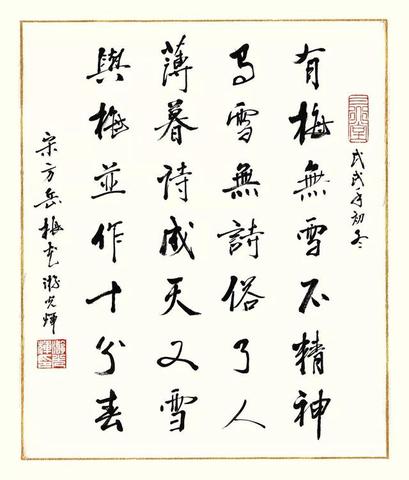 戊戌年初冬
有梅無雪不精神
有雪無詩俗了人
薄暮詩成天又雪
與梅並作十分春
宋方岳梅花 游光輝